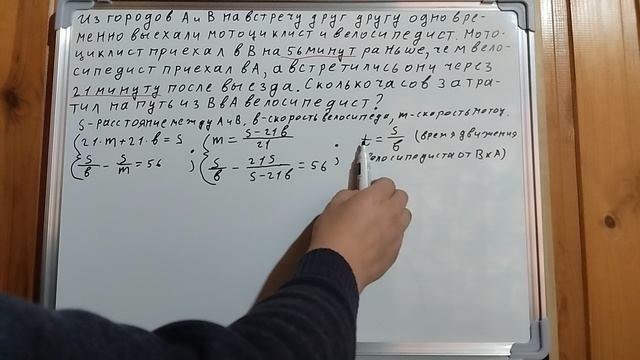 Из городов А и В навстречу друг другу одновре-
менно выехали мотоциклист и велосипедист. Мото-
циклист приехал в В на 56 минут раньше, чем вело-
сипедист приехал в А, а встретились они через
21 минуту после выезда. Сколько часов затра-
тил на путь из В в А велосипедист?
S-расстояние между А и В, в-скорость велосипеда, m-скорость мотоц.
{21·m+21·в=S ; {m=(S-21в)/21 ; t=S/в (время движения
{S/в-S/m=56 ; {S/в-21S/(S-21в)=56 ; велосипедиста от В к А)